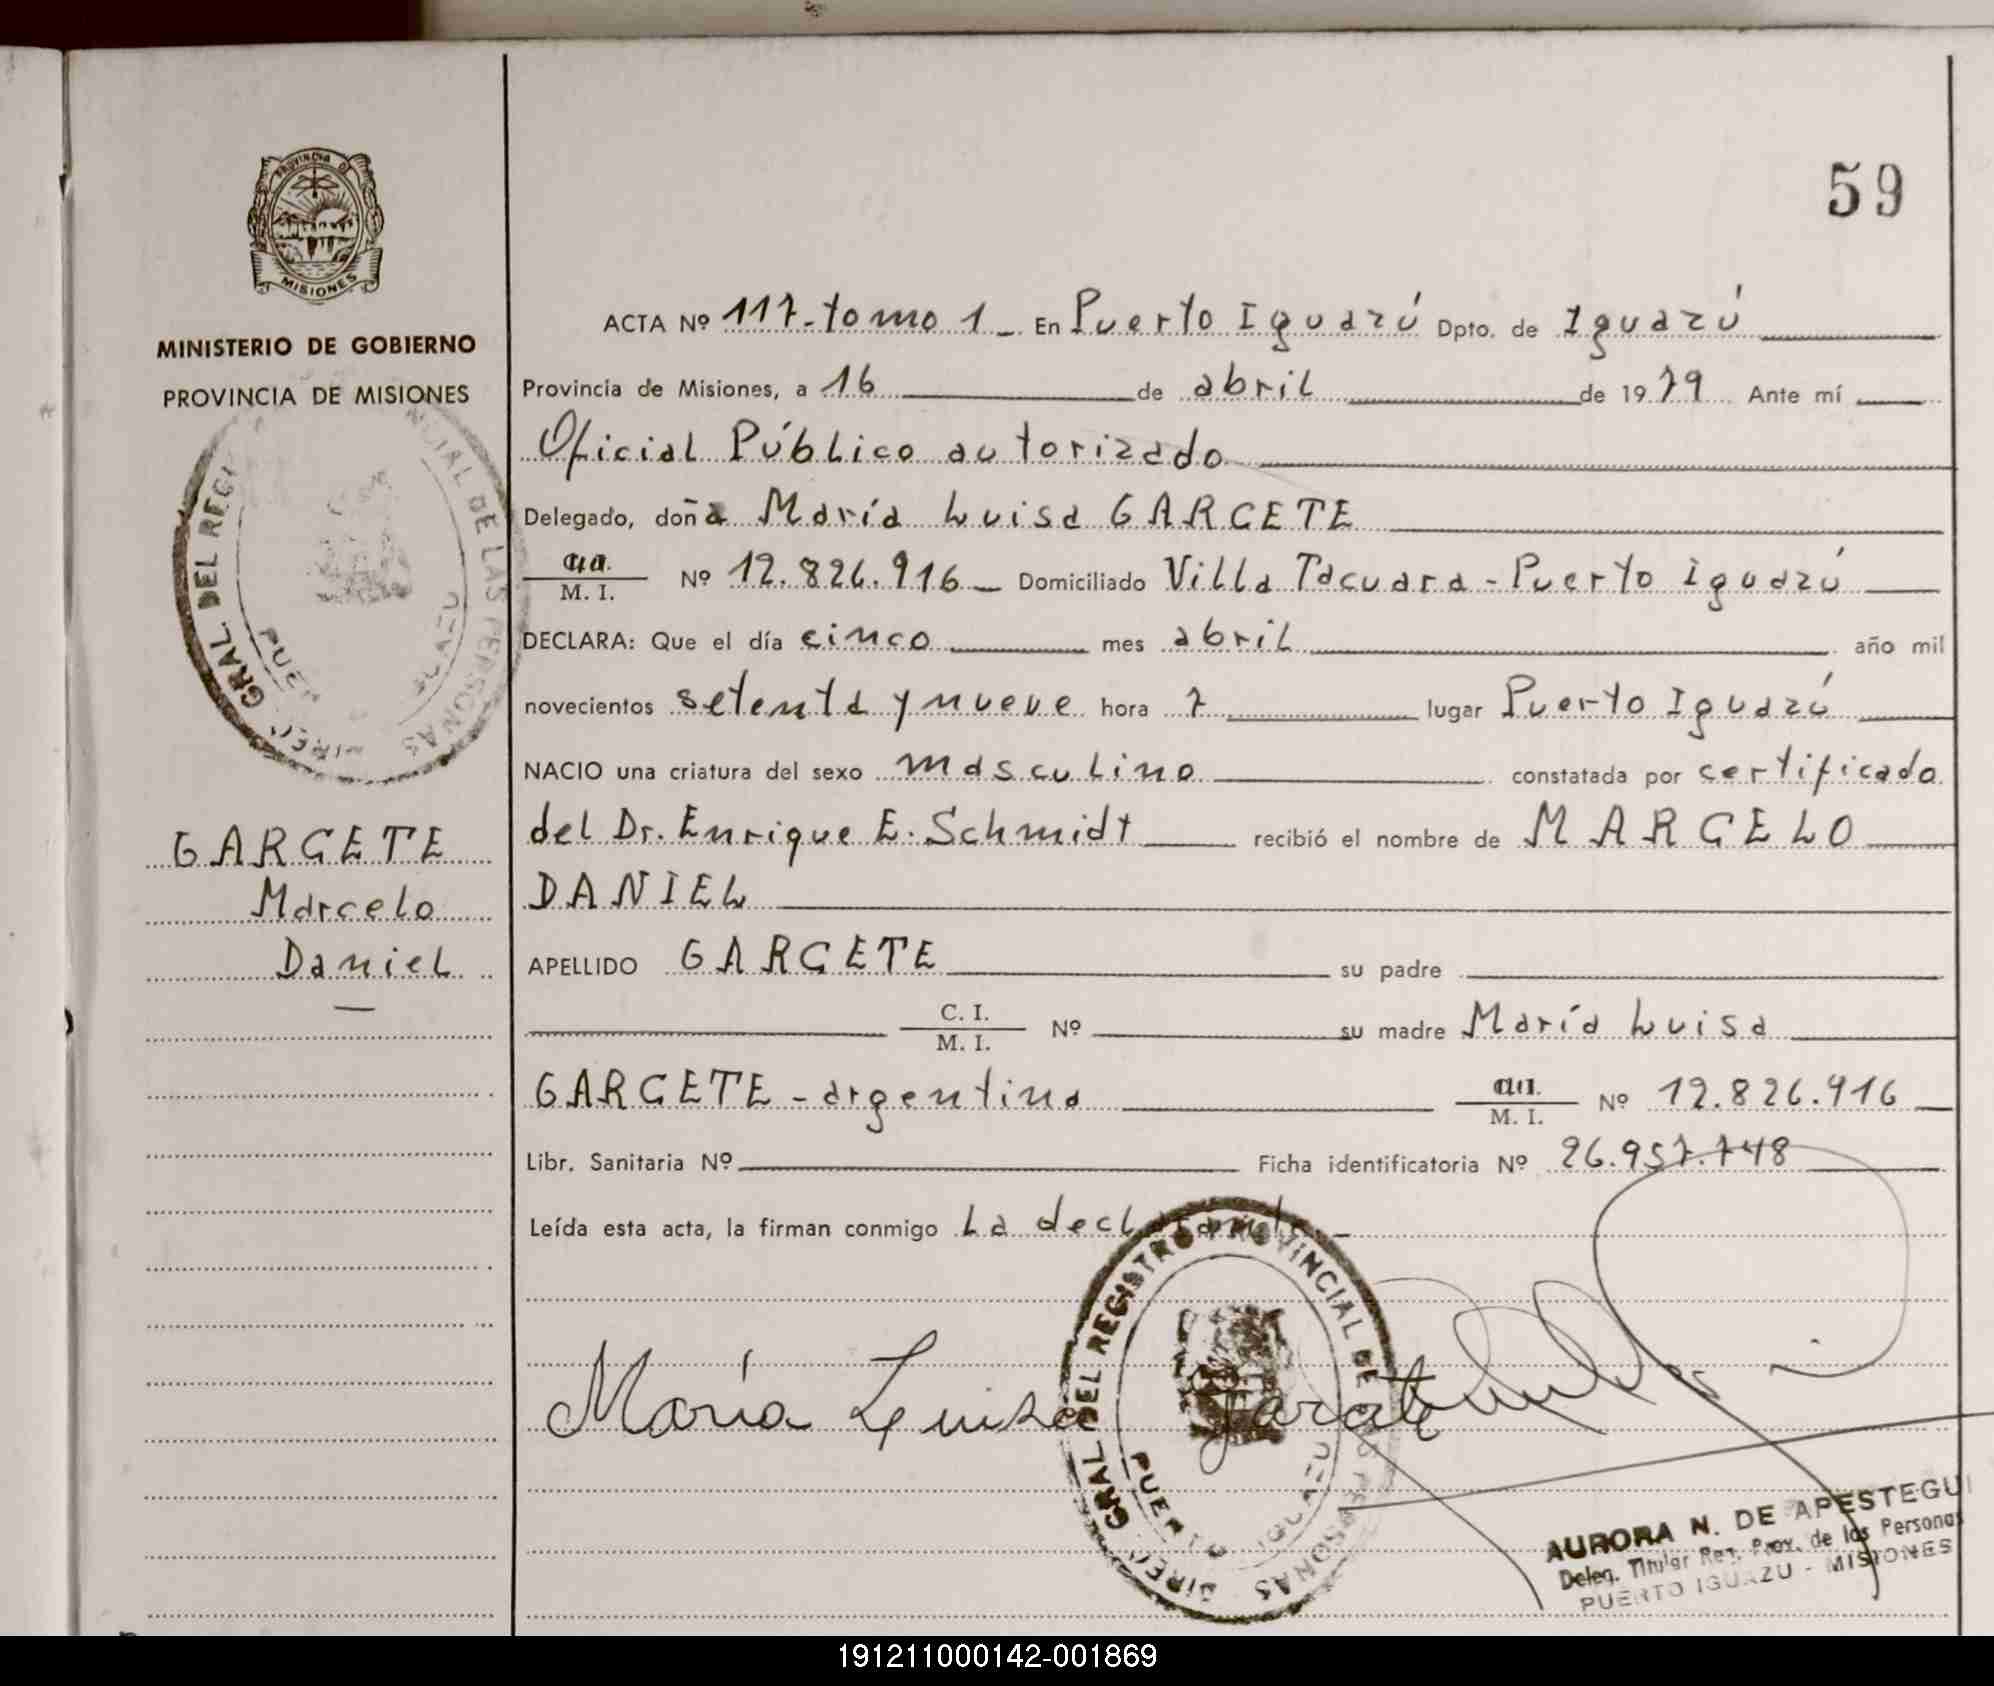 59
PROVINCIA DE
MISIONES
MINISTERIO DE GOBIERNO
PROVINCIA DE MISIONES
GARCETE
Marcelo
Daniel
ACTA Nº 117-tomo 1 En Puerto Iguazú Dpto. de Iguazú
Provincia de Misiones, a 16 de abril de 1979 Ante mí
Oficial Público autorizado
Delegado, doña María Luisa GARCETE
M. I. Nº 12.826.916 Domiciliado Villa Tacuara - Puerto Iguazú
DECLARA: Que el día cinco mes abril año mil
novecientos setenta y nueve hora 7 lugar Puerto Iguazú
NACIO una criatura del sexo masculino constatada por certificado
del Dr. Enrique E. Schmidt recibió el nombre de MARCELO
DANIEL
APELLIDO GARCETE su padre
C. I.
M. I. Nº su madre María Luisa
GARCETE - argentina M. I. Nº 12.826.916
Libr. Sanitaria Nº Ficha identificatoria Nº 26.957.748
Leída esta acta, la firman conmigo La declarante
María Luisa Garcete
DIREC. GRAL. DEL REGISTRO PROVINCIAL DE LAS PERSONAS
PUERTO IGUAZU
AURORA N. DE APESTEGUI
Deleg. Titular Reg. Prov. de las Personas
PUERTO IGUAZU - MISIONES
191211000142-001869